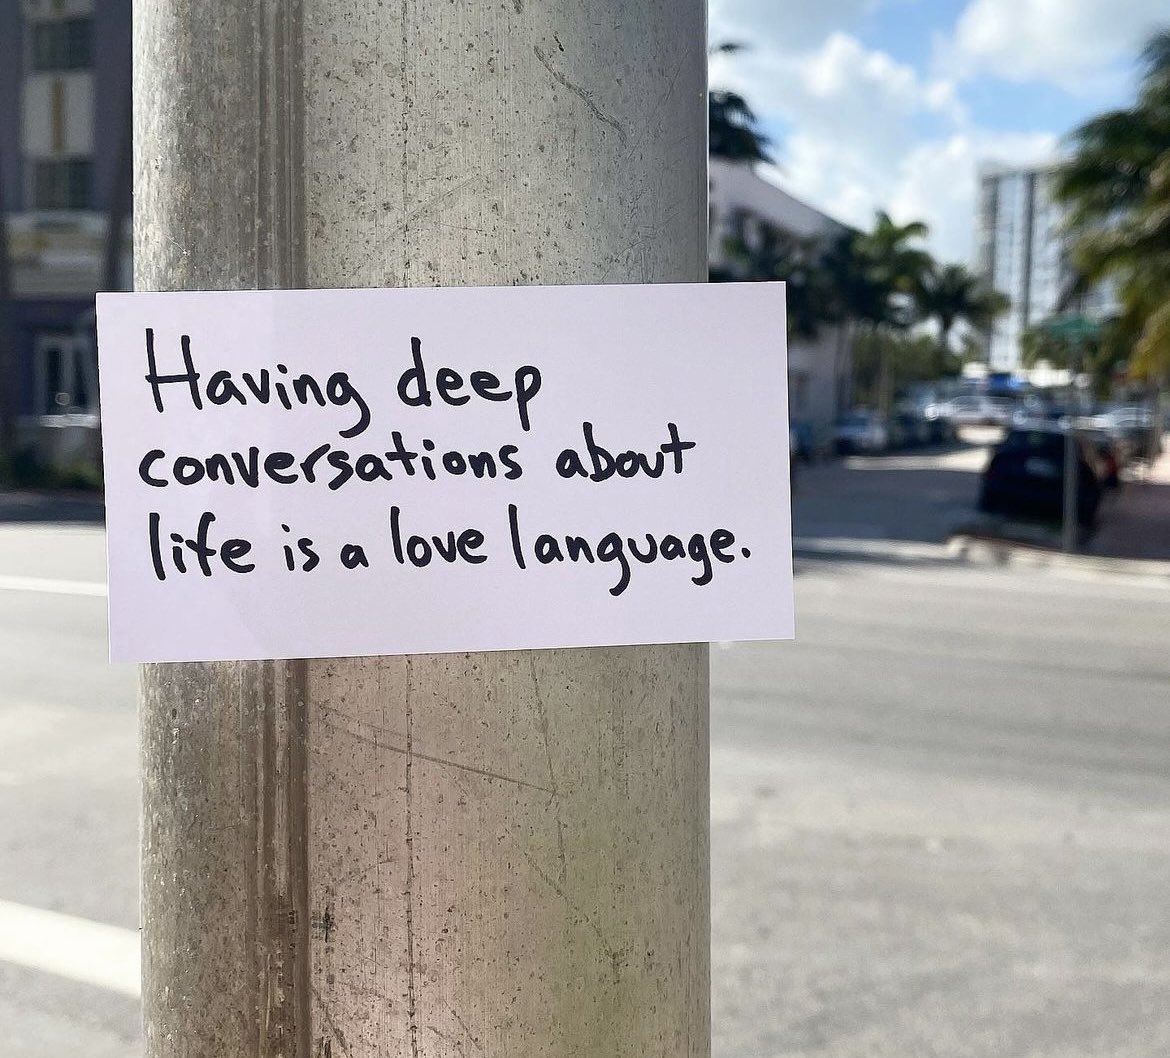 Having deep
conversations about
life is a love language.